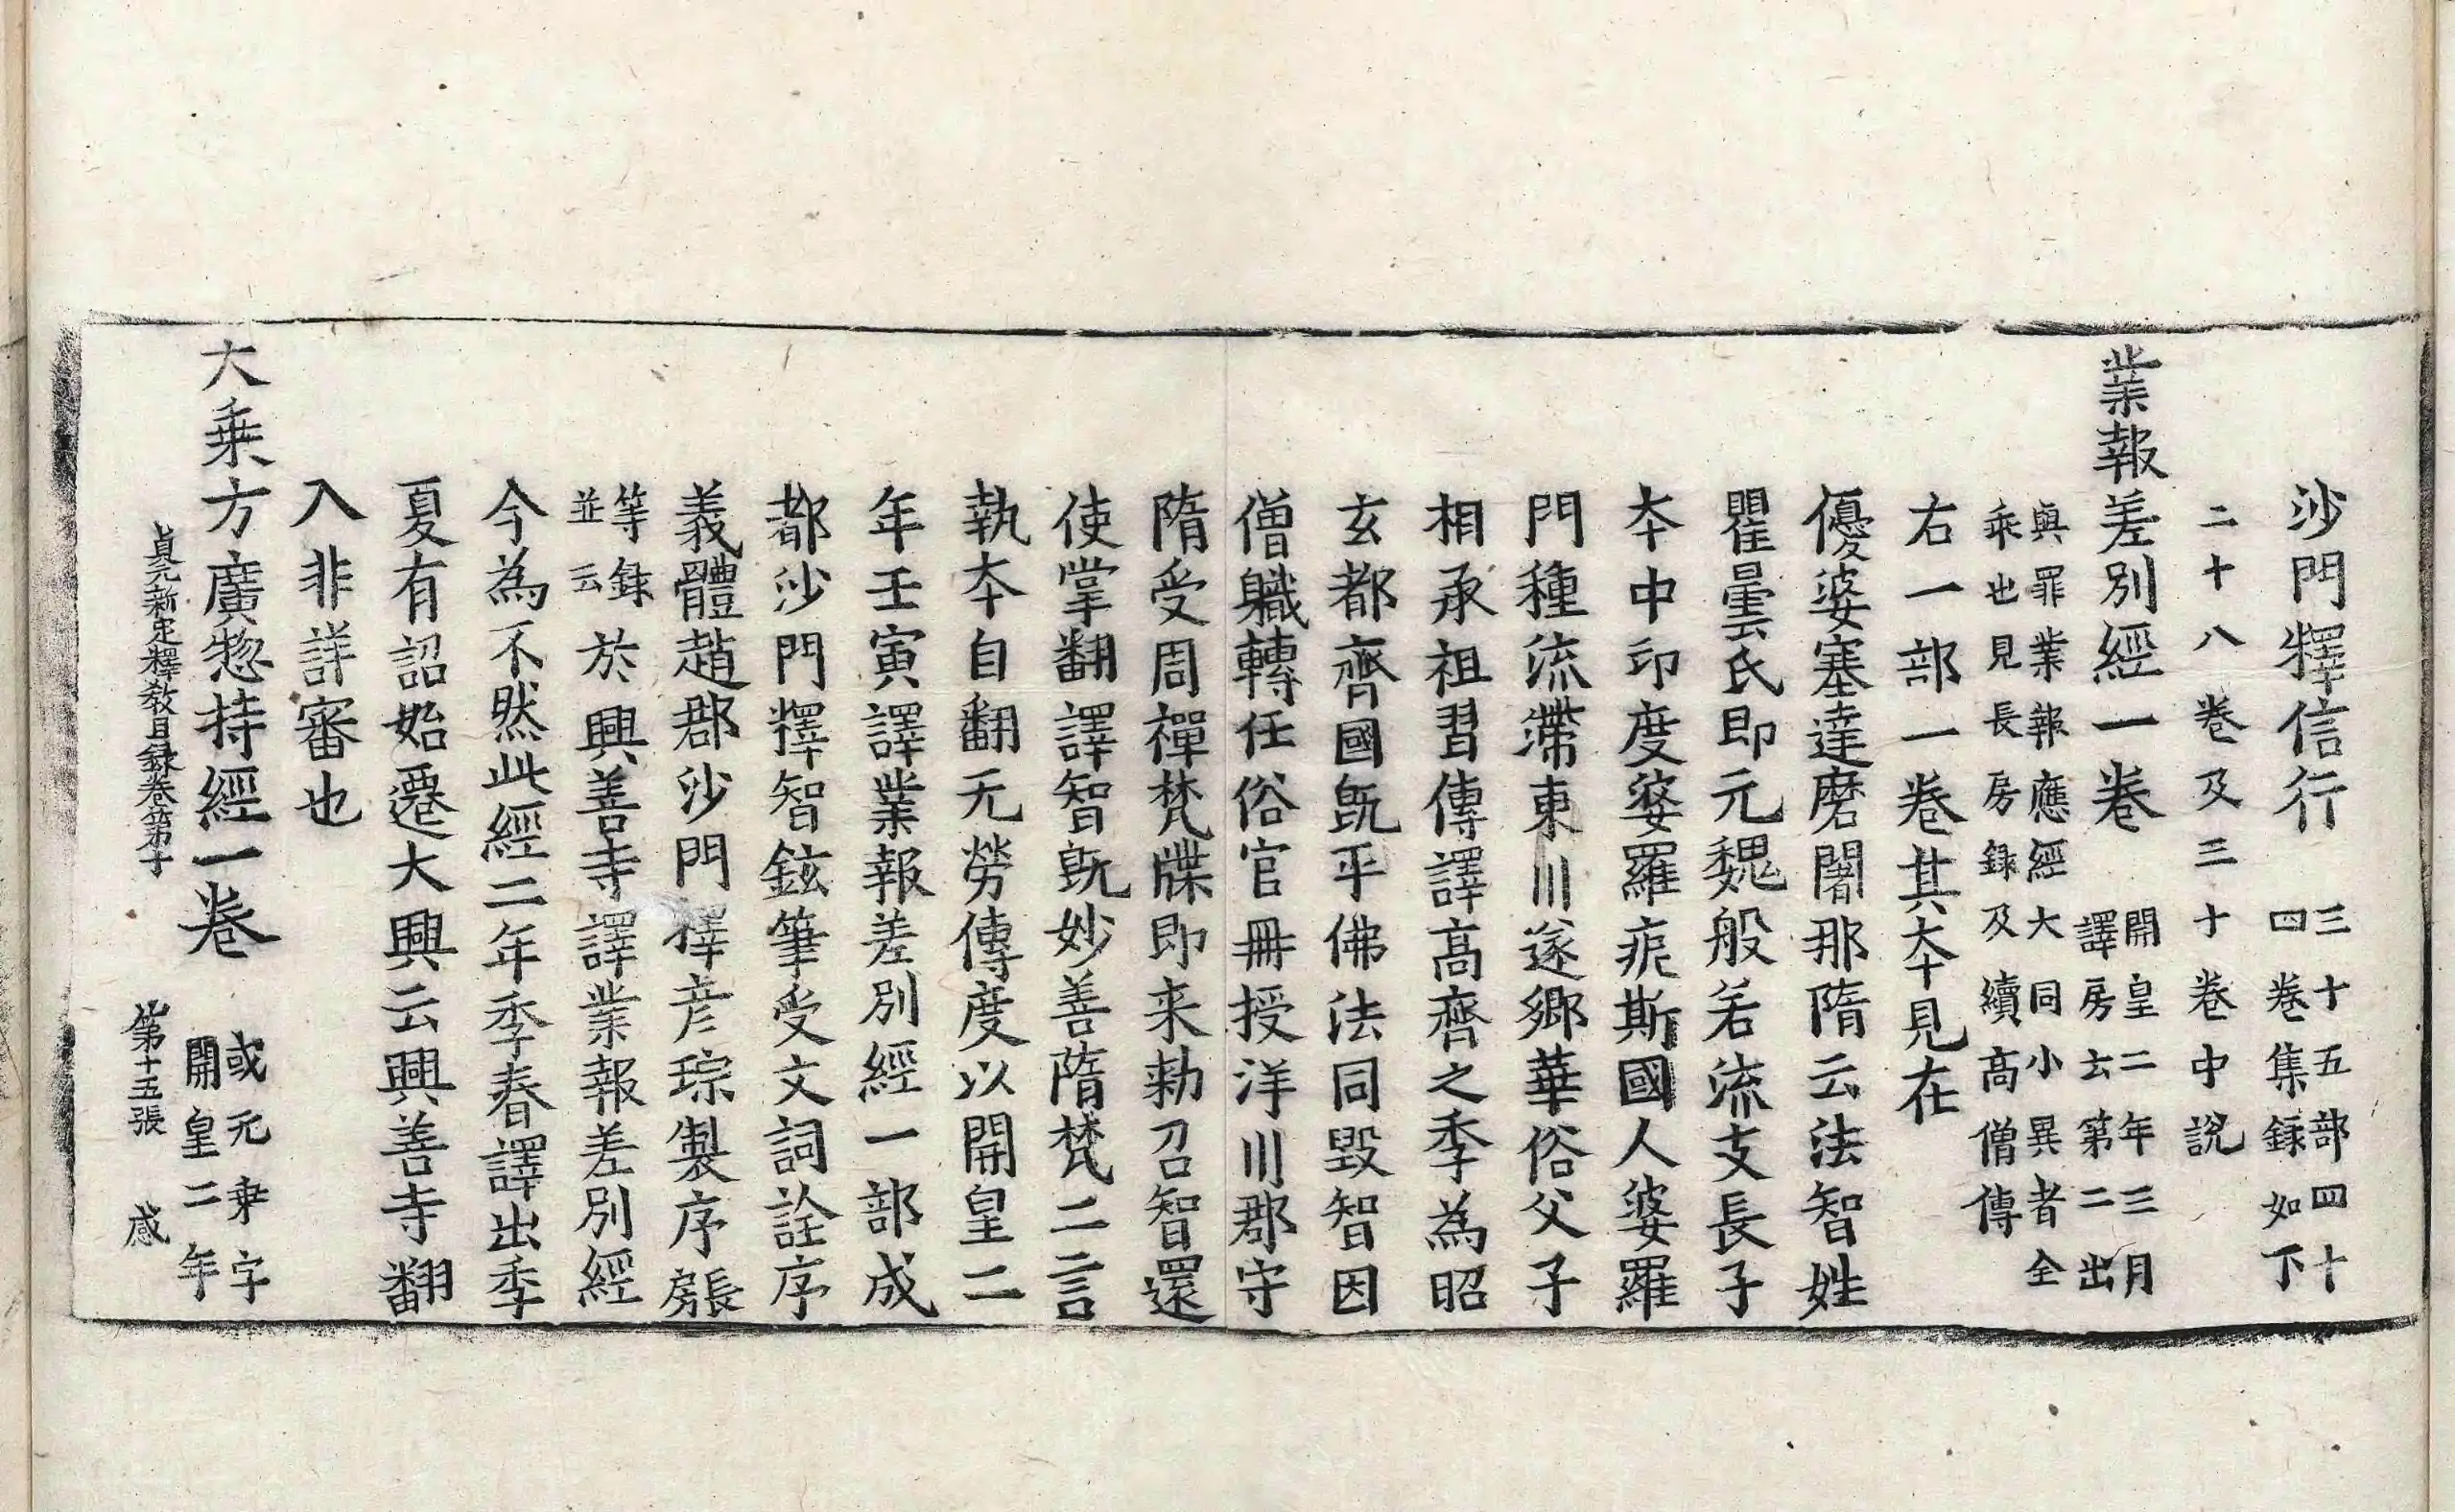 沙門釋信行三十五部四十四卷集録如下
二十八卷及三十卷中說
業報差別經一卷開皇二年三月譯房云第二出
與罪業報應經大同小異者全乘也見長房録及續高僧傳
右一部一卷其本見在
優婆塞達磨闍那隋云法智姓
瞿曇氏即元魏般若流支長子
本中印度婆羅痆斯國人婆羅
門種流滯東川遂鄉華俗父子
相承祖習傳譯高齊之季為昭
玄都齊國既平佛法同毀智因
僧職轉任俗官冊授洋川郡守
隋受周禪梵牒即来勅召智還
使掌翻譯智既妙善隋梵二言
執本自翻无勞傳度以開皇二
年壬寅譯業報差別經一部成
都沙門釋智鉉筆受文詞詮序
義體趙郡沙門釋彥琮製序長房
等録並云於興善寺譯業報差別經
今為不然此經二年季春譯出季
夏有詔始遷大興云興善寺翻
入非詳審也
大乘方廣惣持經一卷或元乗字開皇二年
貞元新定釋教目録卷第十　第十五張　感